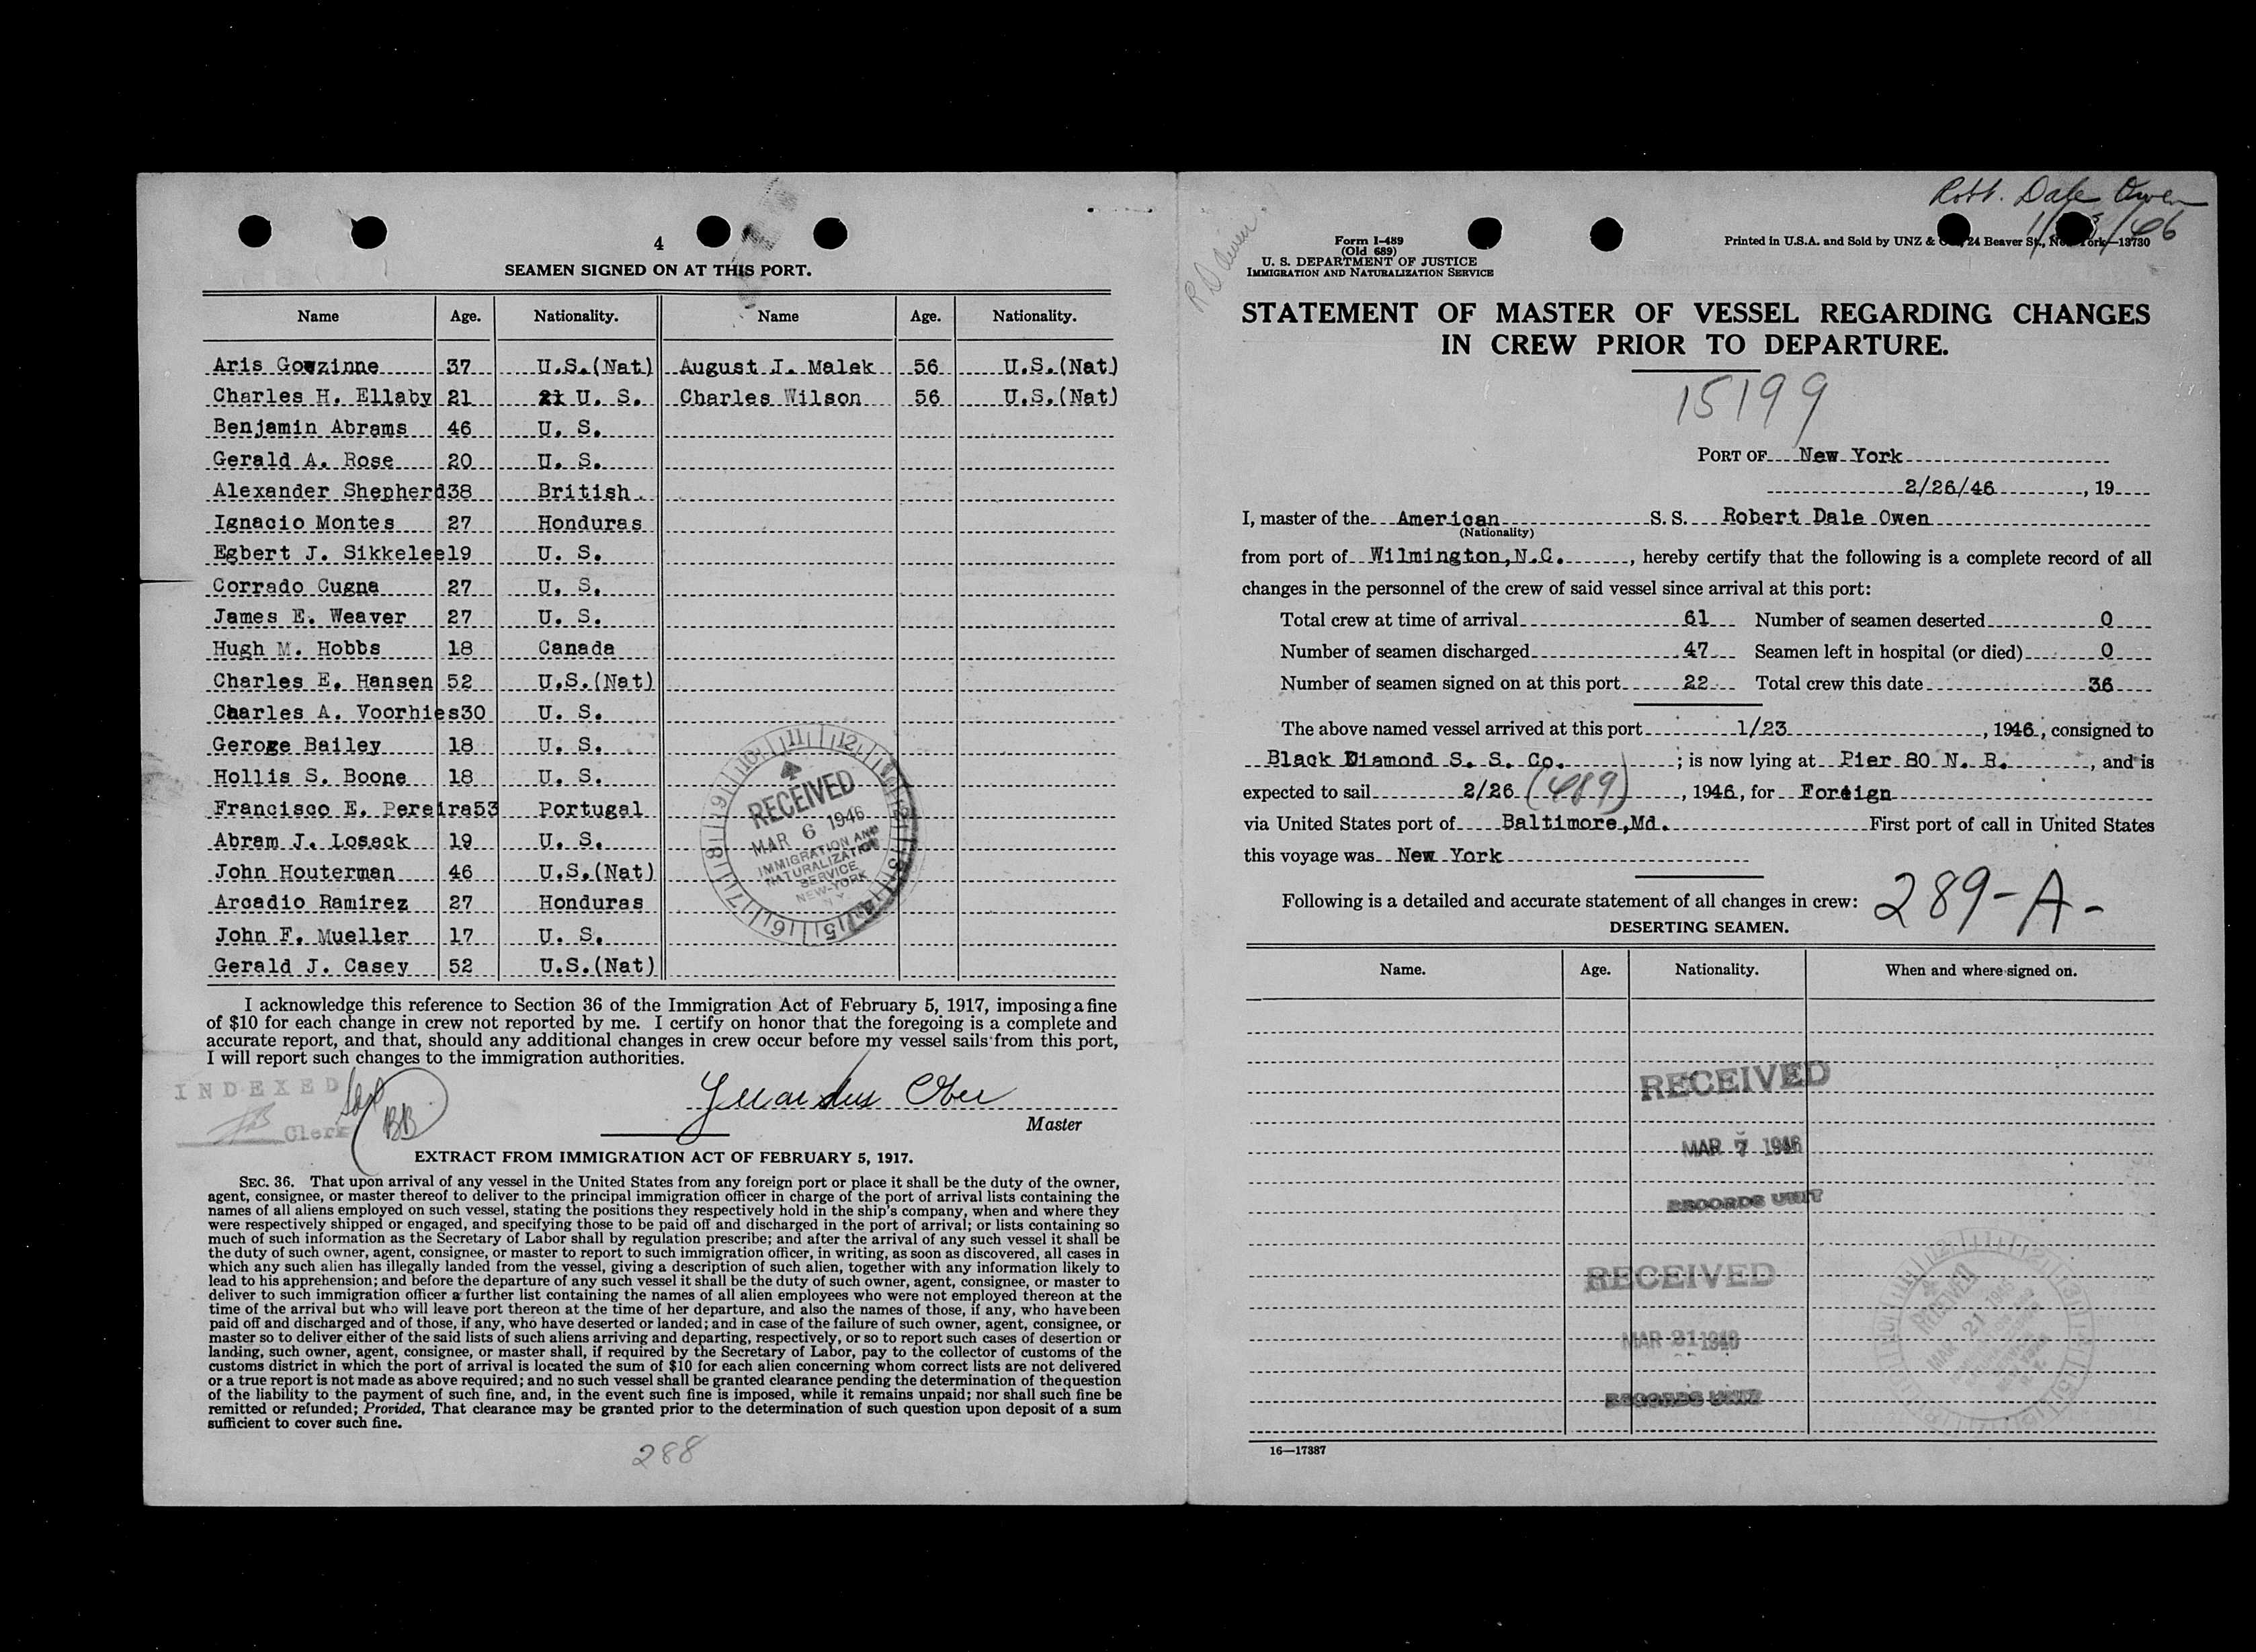 4
SEAMEN SIGNED ON AT THIS PORT.
Name Age. Nationality. Name Age. Nationality.
Aris Gowzinne 37 U.S.(Nat) August J. Malek 56 U.S.(Nat)
Charles H. Ellaby 21 21 U. S. Charles Wilson 56 U.S.(Nat)
Benjamin Abrams 46 U. S.
Gerald A. Rose 20 U. S.
Alexander Shepherd 38 British
Ignacio Montes 27 Honduras
Egbert J. Sikkelee 19 U. S.
Corrado Cugna 27 U. S.
James E. Weaver 27 U. S.
Hugh M. Hobbs 18 Canada
Charles E. Hansen 52 U.S.(Nat)
Charles A. Voorhies 30 U. S.
Geroge Bailey 18 U. S.
Hollis S. Boone 18 U. S.
Francisco E. Pereira 53 Portugal
Abram J. Losack 19 U. S.
John Houterman 46 U.S.(Nat)
Arcadio Ramirez 27 Honduras
John F. Mueller 17 U. S.
Gerald J. Casey 52 U.S.(Nat)
RECEIVED
MAR 6 1946
IMMIGRATION AND
NATURALIZATION
SERVICE
NEW-YORK
N Y
I acknowledge this reference to Section 36 of the Immigration Act of February 5, 1917, imposing a fine
of $10 for each change in crew not reported by me. I certify on honor that the foregoing is a complete and
accurate report, and that, should any additional changes in crew occur before my vessel sails from this port,
I will report such changes to the immigration authorities.
INDEXED
Clerk
BB
Master
EXTRACT FROM IMMIGRATION ACT OF FEBRUARY 5, 1917.
SEC. 36. That upon arrival of any vessel in the United States from any foreign port or place it shall be the duty of the owner,
agent, consignee, or master thereof to deliver to the principal immigration officer in charge of the port of arrival lists containing the
names of all aliens employed on such vessel, stating the positions they respectively hold in the ship's company, when and where they
were respectively shipped or engaged, and specifying those to be paid off and discharged in the port of arrival; or lists containing so
much of such information as the Secretary of Labor shall by regulation prescribe; and after the arrival of any such vessel it shall be
the duty of such owner, agent, consignee, or master to report to such immigration officer, in writing, as soon as discovered, all cases in
which any such alien has illegally landed from the vessel, giving a description of such alien, together with any information likely to
lead to his apprehension; and before the departure of any such vessel it shall be the duty of such owner, agent, consignee, or master to
deliver to such immigration officer a further list containing the names of all alien employees who were not employed thereon at the
time of the arrival but who will leave port thereon at the time of her departure, and also the names of those, if any, who have been
paid off and discharged and of those, if any, who have deserted or landed; and in case of the failure of such owner, agent, consignee, or
master so to deliver either of the said lists of such aliens arriving and departing, respectively, or so to report such cases of desertion or
landing, such owner, agent, consignee, or master shall, if required by the Secretary of Labor, pay to the collector of customs of the
customs district in which the port of arrival is located the sum of $10 for each alien concerning whom correct lists are not delivered
or a true report is not made as above required; and no such vessel shall be granted clearance pending the determination of the question
of the liability to the payment of such fine, and, in the event such fine is imposed, while it remains unpaid; nor shall such fine be
remitted or refunded; Provided, That clearance may be granted prior to the determination of such question upon deposit of a sum
sufficient to cover such fine.
288
Robt. Dale Owen
R D Owen
Form I-489
(Old 689)
U. S. DEPARTMENT OF JUSTICE
IMMIGRATION AND NATURALIZATION SERVICE
Printed in U.S.A. and Sold by UNZ & 24 Beaver St., New York—13730
STATEMENT OF MASTER OF VESSEL REGARDING CHANGES
IN CREW PRIOR TO DEPARTURE.
15199
PORT OF New York
2/26/46, 19
I, master of the American S. S. Robert Dale Owen
(Nationality)
from port of Wilmington,N.C., hereby certify that the following is a complete record of all
changes in the personnel of the crew of said vessel since arrival at this port:
Total crew at time of arrival 61 Number of seamen deserted 0
Number of seamen discharged 47 Seamen left in hospital (or died) 0
Number of seamen signed on at this port 22 Total crew this date 36
The above named vessel arrived at this port 1/23, 1946, consigned to
Black Diamond S. S. Co. ; is now lying at Pier 80 N. R., and is
expected to sail 2/26 (489), 1946, for Foreign
via United States port of Baltimore,Md. First port of call in United States
this voyage was New York
Following is a detailed and accurate statement of all changes in crew: 289-A-
DESERTING SEAMEN.
Name. Age. Nationality. When and where signed on.
RECEIVED
MAR 7 1946
RECORDS UNIT
RECEIVED
MAR 21 1946
RECORDS UNIT
RECEIVED
MAR 21 1946
16—17387